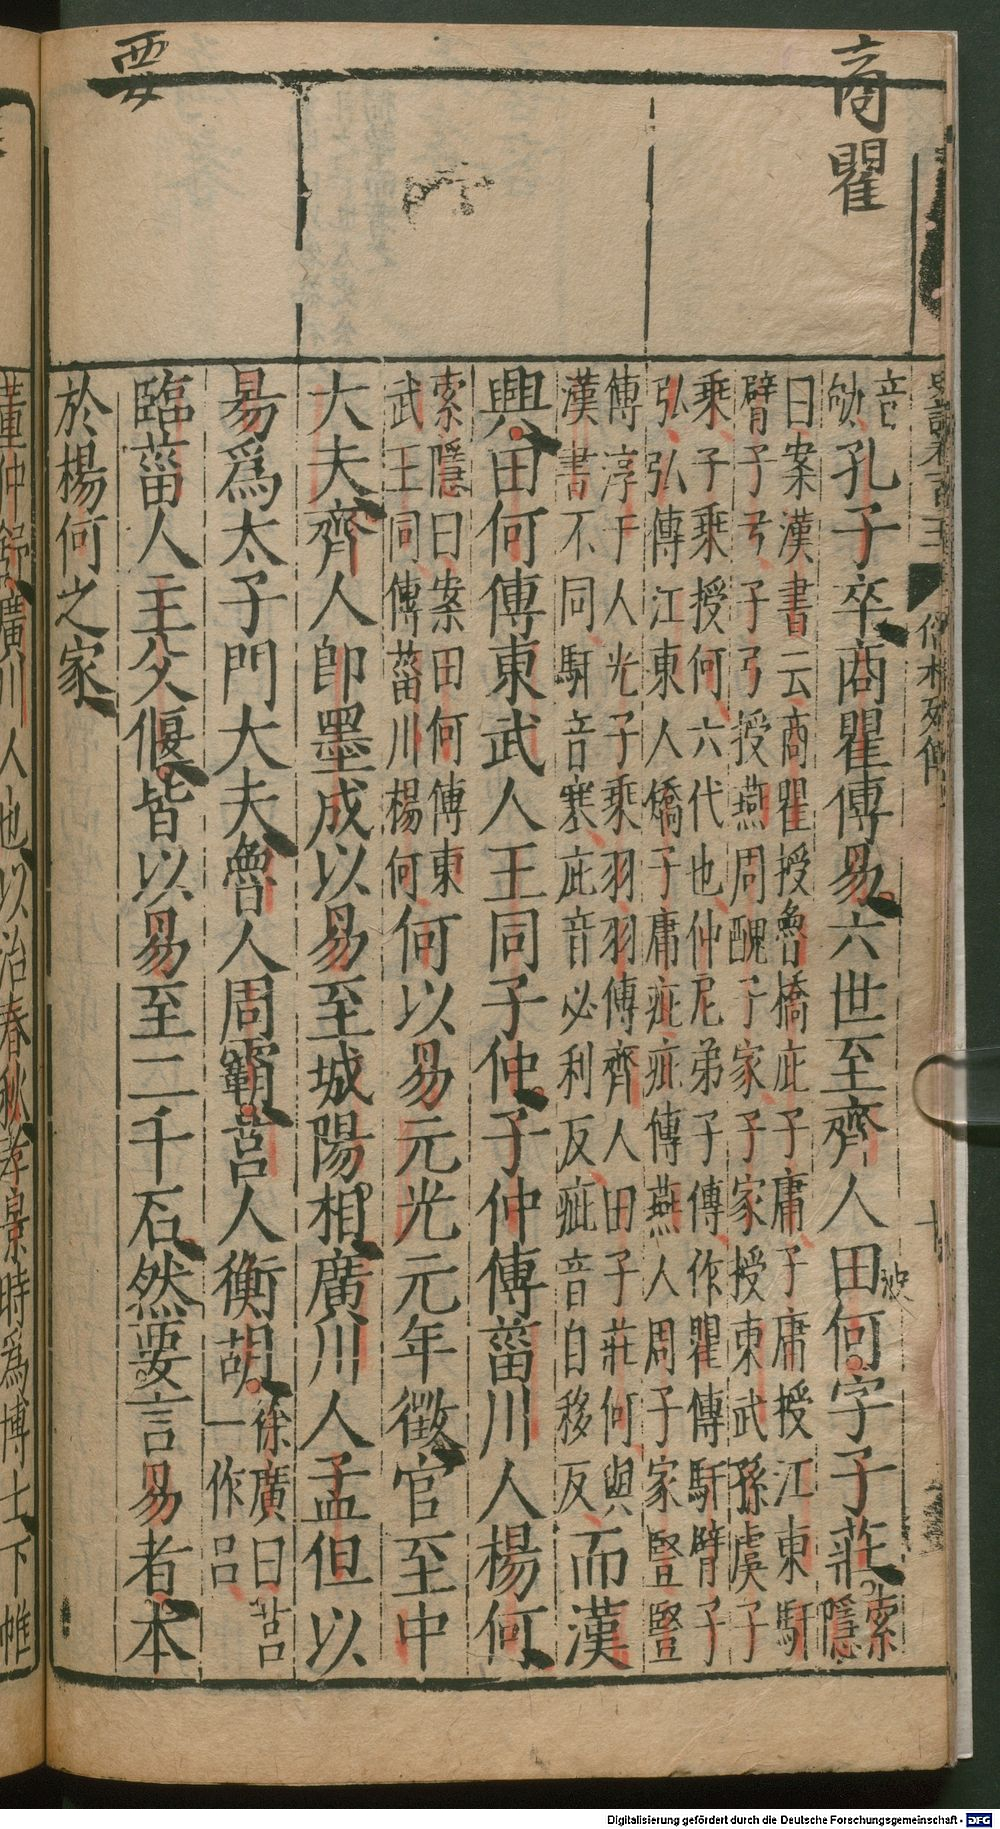 商瞿
要
音
劬
孔子卒商瞿傳易六世至齊人田何字子莊
索
隱
曰案漢書云商瞿授魯橋庇子庸子庸授江東馯
臂子弓子弓授燕周醜子家子家授東武孫虞子
乘子乘授何六代也仲尼弟子傳作瞿傳馯臂子
弘弘傳江東人矯子庸疵疵傳燕人周子家豎豎
傳淳于人光子乘羽羽傳齊人田子莊何與
漢書不同馯音寒庇音必利反疵音自移反
而漢
興田何傳東武人王同子仲子仲傳菑川人楊何
索隱曰案田何傳東
武王同傳菑川楊何
何以易元光元年徵官至中
大夫齊人即墨成以易至城陽相廣川人孟但以
易爲太子門大夫魯人周霸莒人衡胡
徐廣曰莒
一作呂
臨菑人主父偃皆以易至二千石然要言易者本
於楊何之家
董仲舒廣川人也以治春秋孝景時爲博士下帷
Digitalisierung gefördert durch die Deutsche Forschungsgemeinschaft - DFG